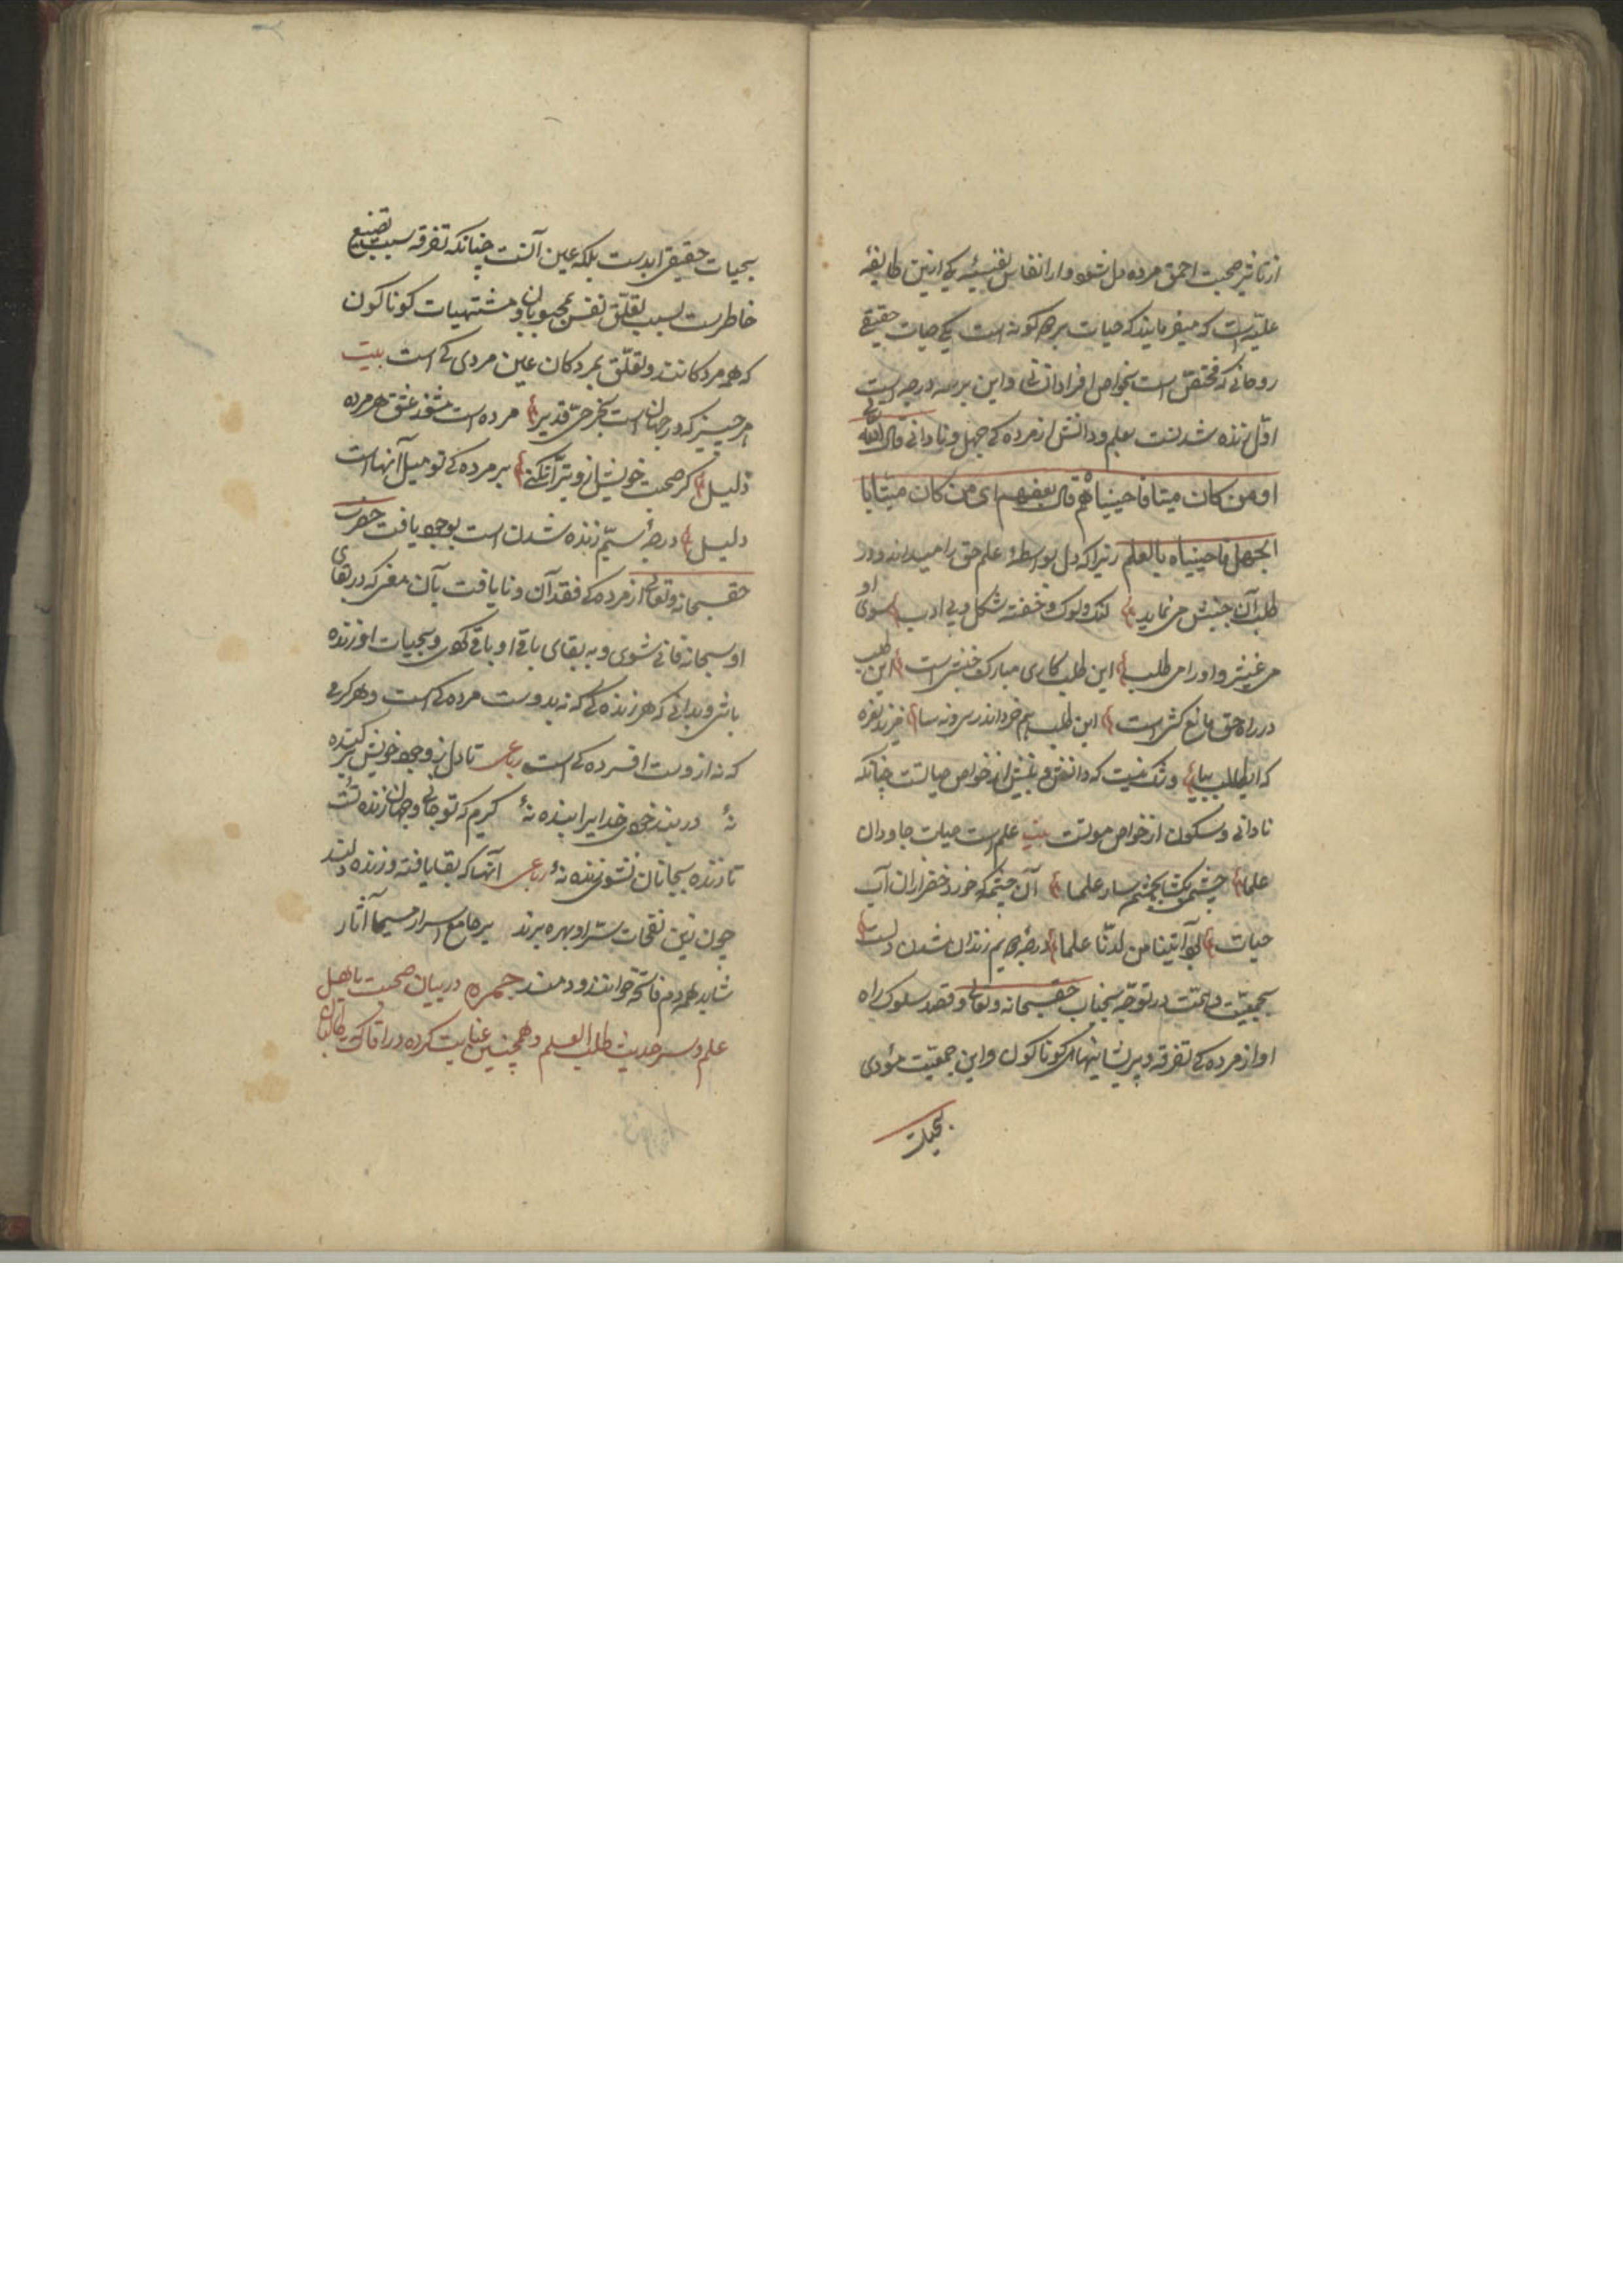 از تاثیر صحبت احمق مرده دل نشود و از انفاس نفیسهٔ یکی ازین طایفهٔ
علیّه است که میفرمایند که حیات بر دو کونه است یکی حیات حقیقی
روحانی که مختصّ است بخواص افراد انسانی و این بر سه درجه است
اوّل زنده شدنست بعلم و دانش از مرده کی جهل و نادانی قال الله تعالی
او من کان میتا فاحییناه قال بعضهم ای من کان میّتا با
لجهل فاحییناه بالعلم زیرا که دل بواسطهٔ علم حق را میداند و در
طلب آن جنبش می نماید لنک و لوک و خفته شکل و بی ادب سوی او
می غیژ و او را می طلب این طلب کاری مبارک جنبش است این طلب
در راه حق مانع کشی است این طلب هم
که ای طالب بیا و شک نیست که دانش و بینش از خواص حیاتست چنانکه
نادانی و سکون از خواص موتست بیت علم است حیات جاودان
علما چشمی بکشا بچشم سار علما آن چشمه که خورد خضر از آن آب
حیات آتینا من لدنّا علما درجهٔ دویم زنده شدن دلست
بجمعیّت و همّت در توجّه بجناب حق سبحانه و تعالی و قصد سلوک راه
او از مرده کی تفرقه و پریشانیهای کوناکون و این جمعیّت مؤدی
بحیات
بحیات حقیقی ابدست بلکه عین آنست چنانکه تفرقه سبب تضییع
خاطرست بسبب تعلّق نفس بمحبوبان و مشتهیات کوناکون
که همه مردکانند و تعلّق بمردکان عین مرده کی است بیت
هر چیز که در جهان است بجز حیّ قدیر مرده است مشو ز عشق هر مرده
ذلیل کر صحبت خویش ازو تبرّا نکنی بر مرده کی تو میل آنهاست
دلیل درجهٔ سیّم زنده شدن است بوجود یافت حضرت
حق سبحانه و تعالی از مرده کی فقدان و نایافت بآن معنی که در بقای
او سبحانه فانی شوی و به بقای باقی او باقی کردی و بحیات او زنده
باشی و بدانی که هر زنده کی که نه بدوست مرده کی است و هر کرمی
که نه ازوست افسرده کی است رباعی تا دل ز وجود خویش بر کنده
نهٔ در بند خودی خدایرا بنده نهٔ کیرم که تو جانی و جهان زنده تست
تا زنده بجانان نشوی زنده نهٔ رباعی آنها که بقا یافته و زنده دلند
چون زین نفحات بهره برند بر جامع اسرار مسیحا آثار
شاید همه دم فاتحه خوانند و دمند جمره در بیان صحبت با اهل
علم و سرّ حدیث طلب العلم و همچنین عنایت کرده در اوقاتی که